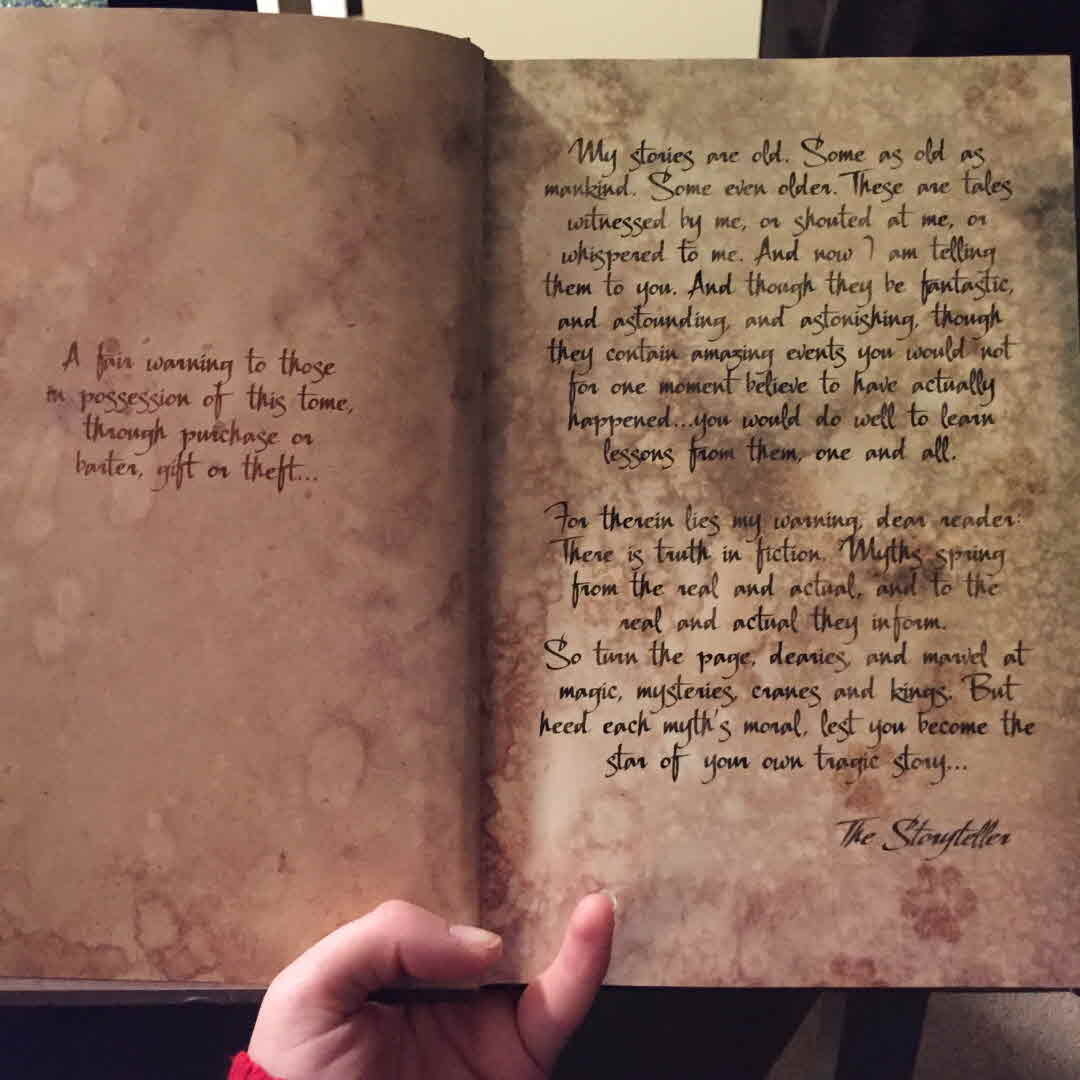 A fair warning to those
in possession of this tome,
through purchase or
barter, gift or theft...
My stories are old. Some as old as
mankind. Some even older. These are tales
witnessed by me, or shouted at me, or
whispered to me. And now I am telling
them to you. And though they be fantastic,
and astounding, and astonishing, though
they contain amazing events you would not
for one moment believe to have actually
happened...you would do well to learn
lessons from them, one and all.
For therein lies my warning, dear reader:
There is truth in fiction. Myths spring
from the real and actual, and to the
real and actual they inform.
So turn the page, dearies, and marvel at
magic, mysteries, cranes and kings. But
heed each myth's moral, lest you become the
star of your own tragic story...
The Storyteller